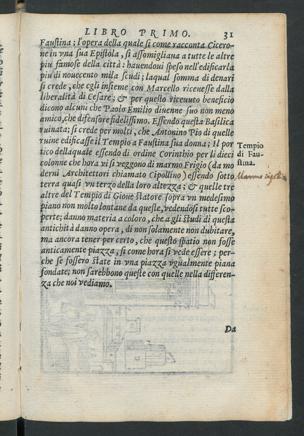 LIBRO PRIMO. 31
Faustina; l'opera della quale si come racconta Cicero-
ne in vna sua Epistola, si assomigliana a tutte le altre
piu famose della città: hauendoui speso nell'edificarla
piu di nouecento mila scudi; laqual somma di denari
si crede, che egli insieme con Marcello riceuesse dalla
liberalità di Cesare; & per questo riceuuto beneficio
dicono alcuni che Paolo Emilio diuenne suo non meno
amico, che difensore fidelissimo. Essendo questa Basilica
ruinata; si crede per molti, che Antonino Pio di quelle
ruine edificasse il Tempio a Faustina sua donna; Il por
tico dellaquale essendo di ordine Corinthio per li dieci
colonne che hora vi si veggono di marmo Frigio (da mo
derni Architettori chiamato Cipollino) essendo sotto
terra quasi vn terzo della loro altezza; & quelle tre
altre del Tempio di Gioue statore sopra vn medesimo
piano non molto lontane da queste, vedendosi tutte sco-
perte; danno materia a coloro, che a gli studi di questa
antichità danno opera, di non solamente dubitare,
ma ancora tener per certo, che questo spatio non fosse
anticamente piazza, si come hora si vede essere; per-
che se fossero state in vna piazza vgualmente piana
fondate; non sarebbono queste con quelle nella differen-
za che noi vediamo.
Tempio
di Fau-
stina.
Marmo
Da